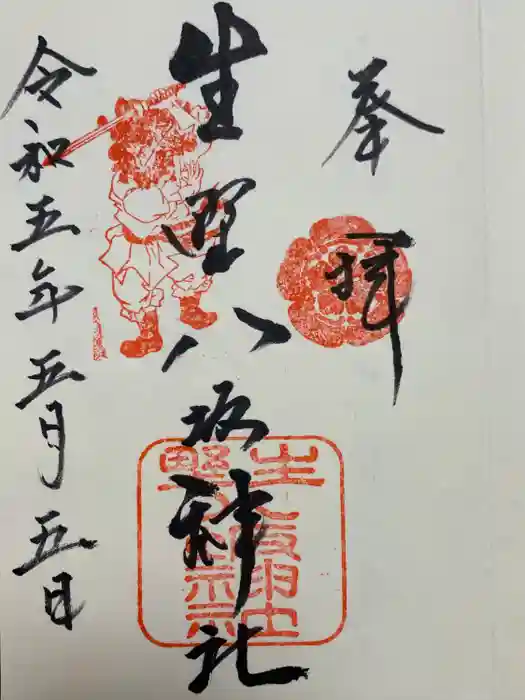 奉拝
生野八坂神社
令和五年五月五日
生野八坂神社